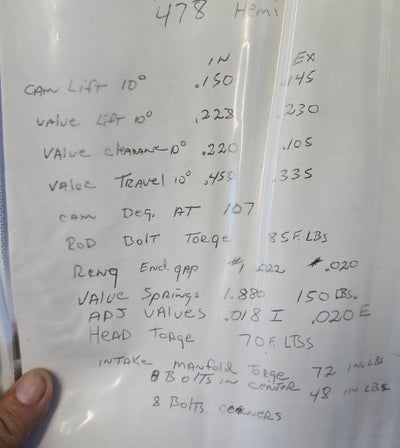 478 Hemi
IN EX
CAM Lift 10° .150 .145
VALUE Lift 10° .228 .230
VALUE CLEARANE 10° .220 .105
VALUE TRAVEL 10° .450 .335
CAM Deg. AT 107
ROD BOLT TORGE 85 F. LBS
RENG END gAP #1 .022 #.020
VALUE SPRINGS 1.880 150 LBS.
ADJ VALUES .018 I .020 E
HEAD TORGE 70 F. LBS
INTAKE MANFOLD TORGE 72 IN.LBS
8 BOLTS IN CENTER 48 IN LBS
8 BOLTS CORNERS